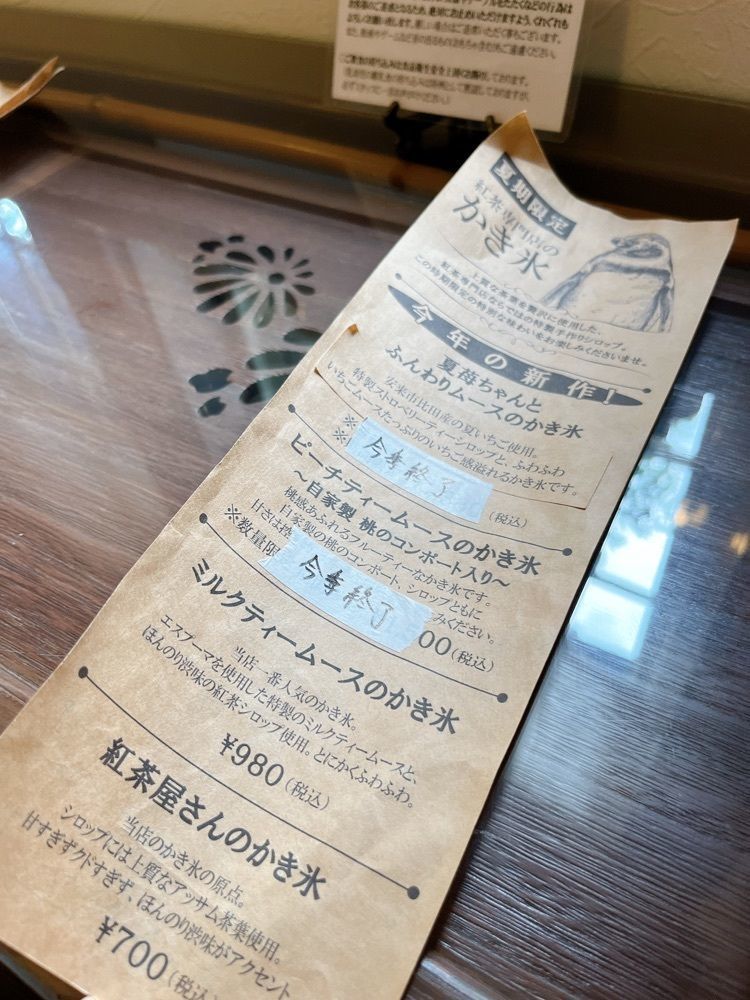 お客様のご迷惑となるため、絶対にお止めいただけますよう、くれぐれも
よろしくお願い致します。
夏期限定
紅茶専門店の
かき氷
上質な茶葉を贅沢に使用した、
紅茶専門店ならではの特製手作りシロップ。
この時期限定の特別な味わいをお楽しみくださいませ。
今年の新作！
夏苺ちゃんと
ふんわりムースのかき氷
安来市比田産の夏いちご使用。
特製ストロベリーティーシロップと、ふわふわ
いちごムースたっぷりのいちご感溢れるかき氷です。
※
※
今季終了
(税込)
ピーチティームースのかき氷
～自家製 桃のコンポート入り～
桃感あふれるフルーティーなかき氷です。
自家製の桃のコンポート、シロップともに
甘さは控 みください。
※数量限
今季終了
00(税込)
ミルクティームースのかき氷
当店一番人気のかき氷。
エスプーマを使用した特製のミルクティームースと、
ほんのり渋味の紅茶シロップ使用。とにかくふわふわ。
¥980(税込)
紅茶屋さんのかき氷
当店のかき氷の原点。
シロップには上質なアッサム茶葉使用。
甘すぎずクドすぎず、ほんのり渋味がアクセント
¥700(税込)